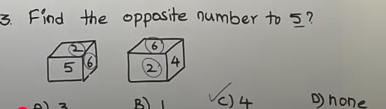 3. Find the opposite number to 5?
2 6
5 6 2 4
A) 3 B) 1 ✓C) 4 D) none